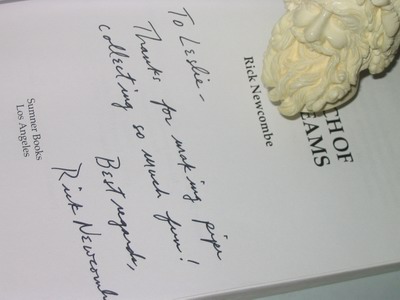 CH OF
EAMS
Rick Newcombe
To Leslie-
Thanks for making pipe
collecting so much fun!
Best regards,
Rick Newcomb
Sumner Books
Los Angeles